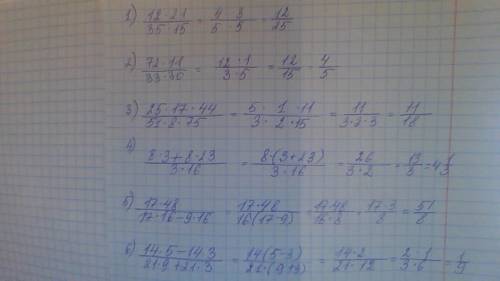 1) (12·21)/(35·15) = (4·3)/(5·5) = 12/25
2) (72·11)/(33·30) = (12·1)/(3·5) = 12/15 = 4/5
3) (25·17·44)/(51·8·75) = (5·1·11)/(3·2·15) = 11/(3·2·3) = 11/18
4) (8·3+8·23)/(3·16) = (8·(3+23))/(3·16) = 26/(3·2) = 13/3 = 4 1/3
5) (17·48)/(17·16-9·16) = (17·48)/(16(17-9)) = (17·48)/(16·8) = (17·3)/8 = 51/8
6) (14·5-14·3)/(21·9+21·3) = (14(5-3))/(21·(9+3)) = (14·2)/(21·12) = (2·1)/(3·6) = 1/9